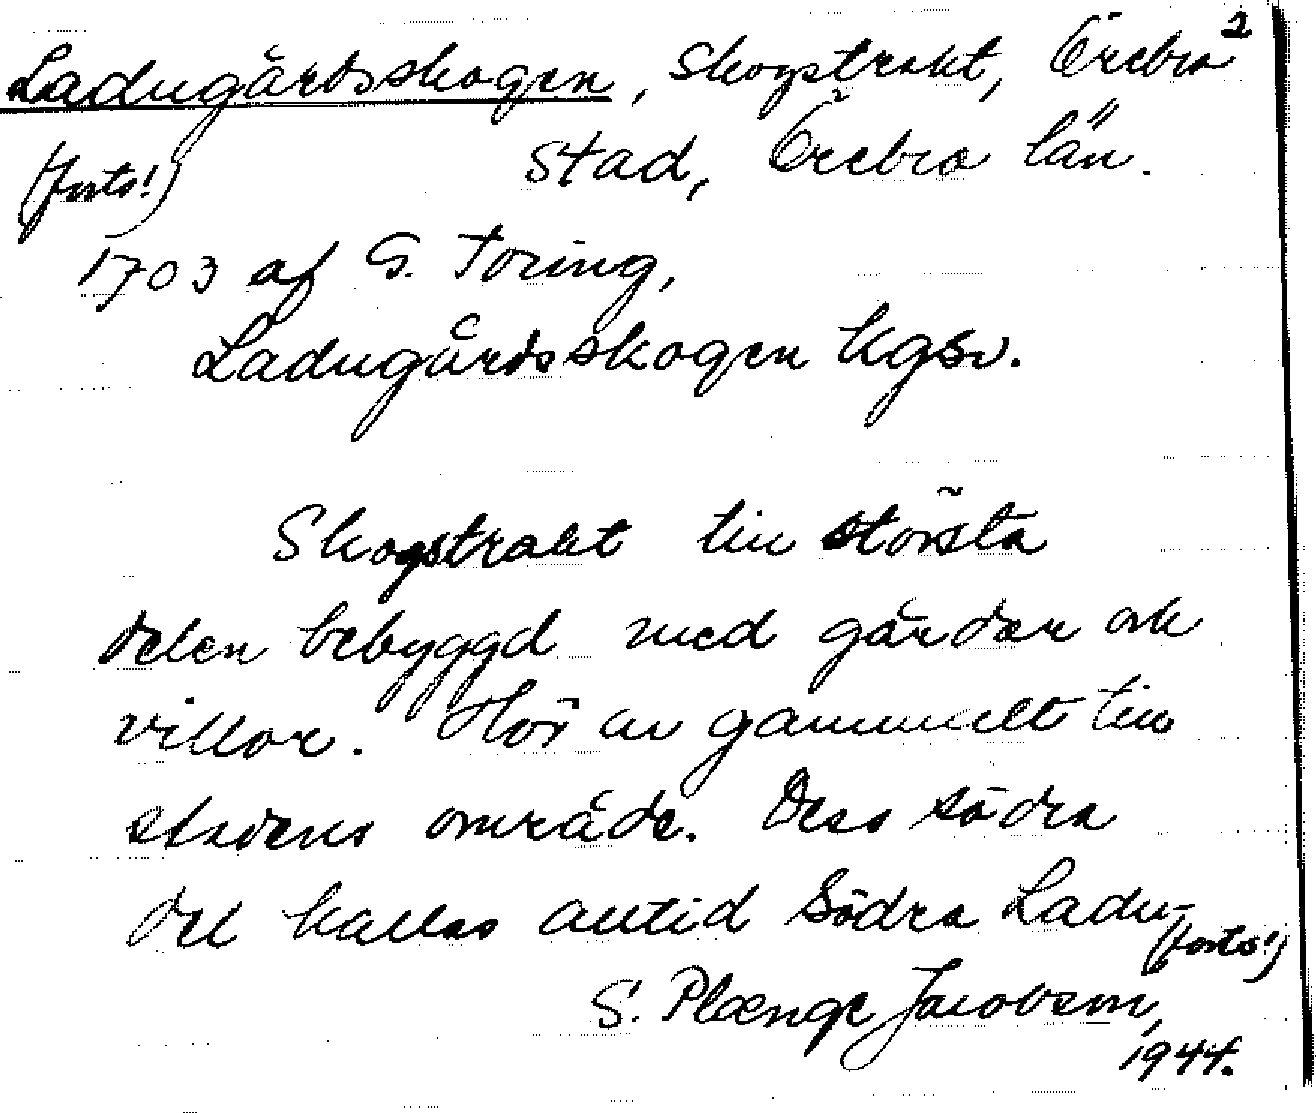 2
Ladugårdsskogen, Skogstrakt, Örebro
(forts!) stad, Örebro län.
1703 af G. Toring,
Ladugårdsskogen kgsv.
Skogstrakt till största
delen bebyggd med gårdar och
villor. Hör av gammalt till
stadens område. Dess södra
del kallas alltid Södra Ladu-
(forts!)
S. Plænge Jacobson,
1944.